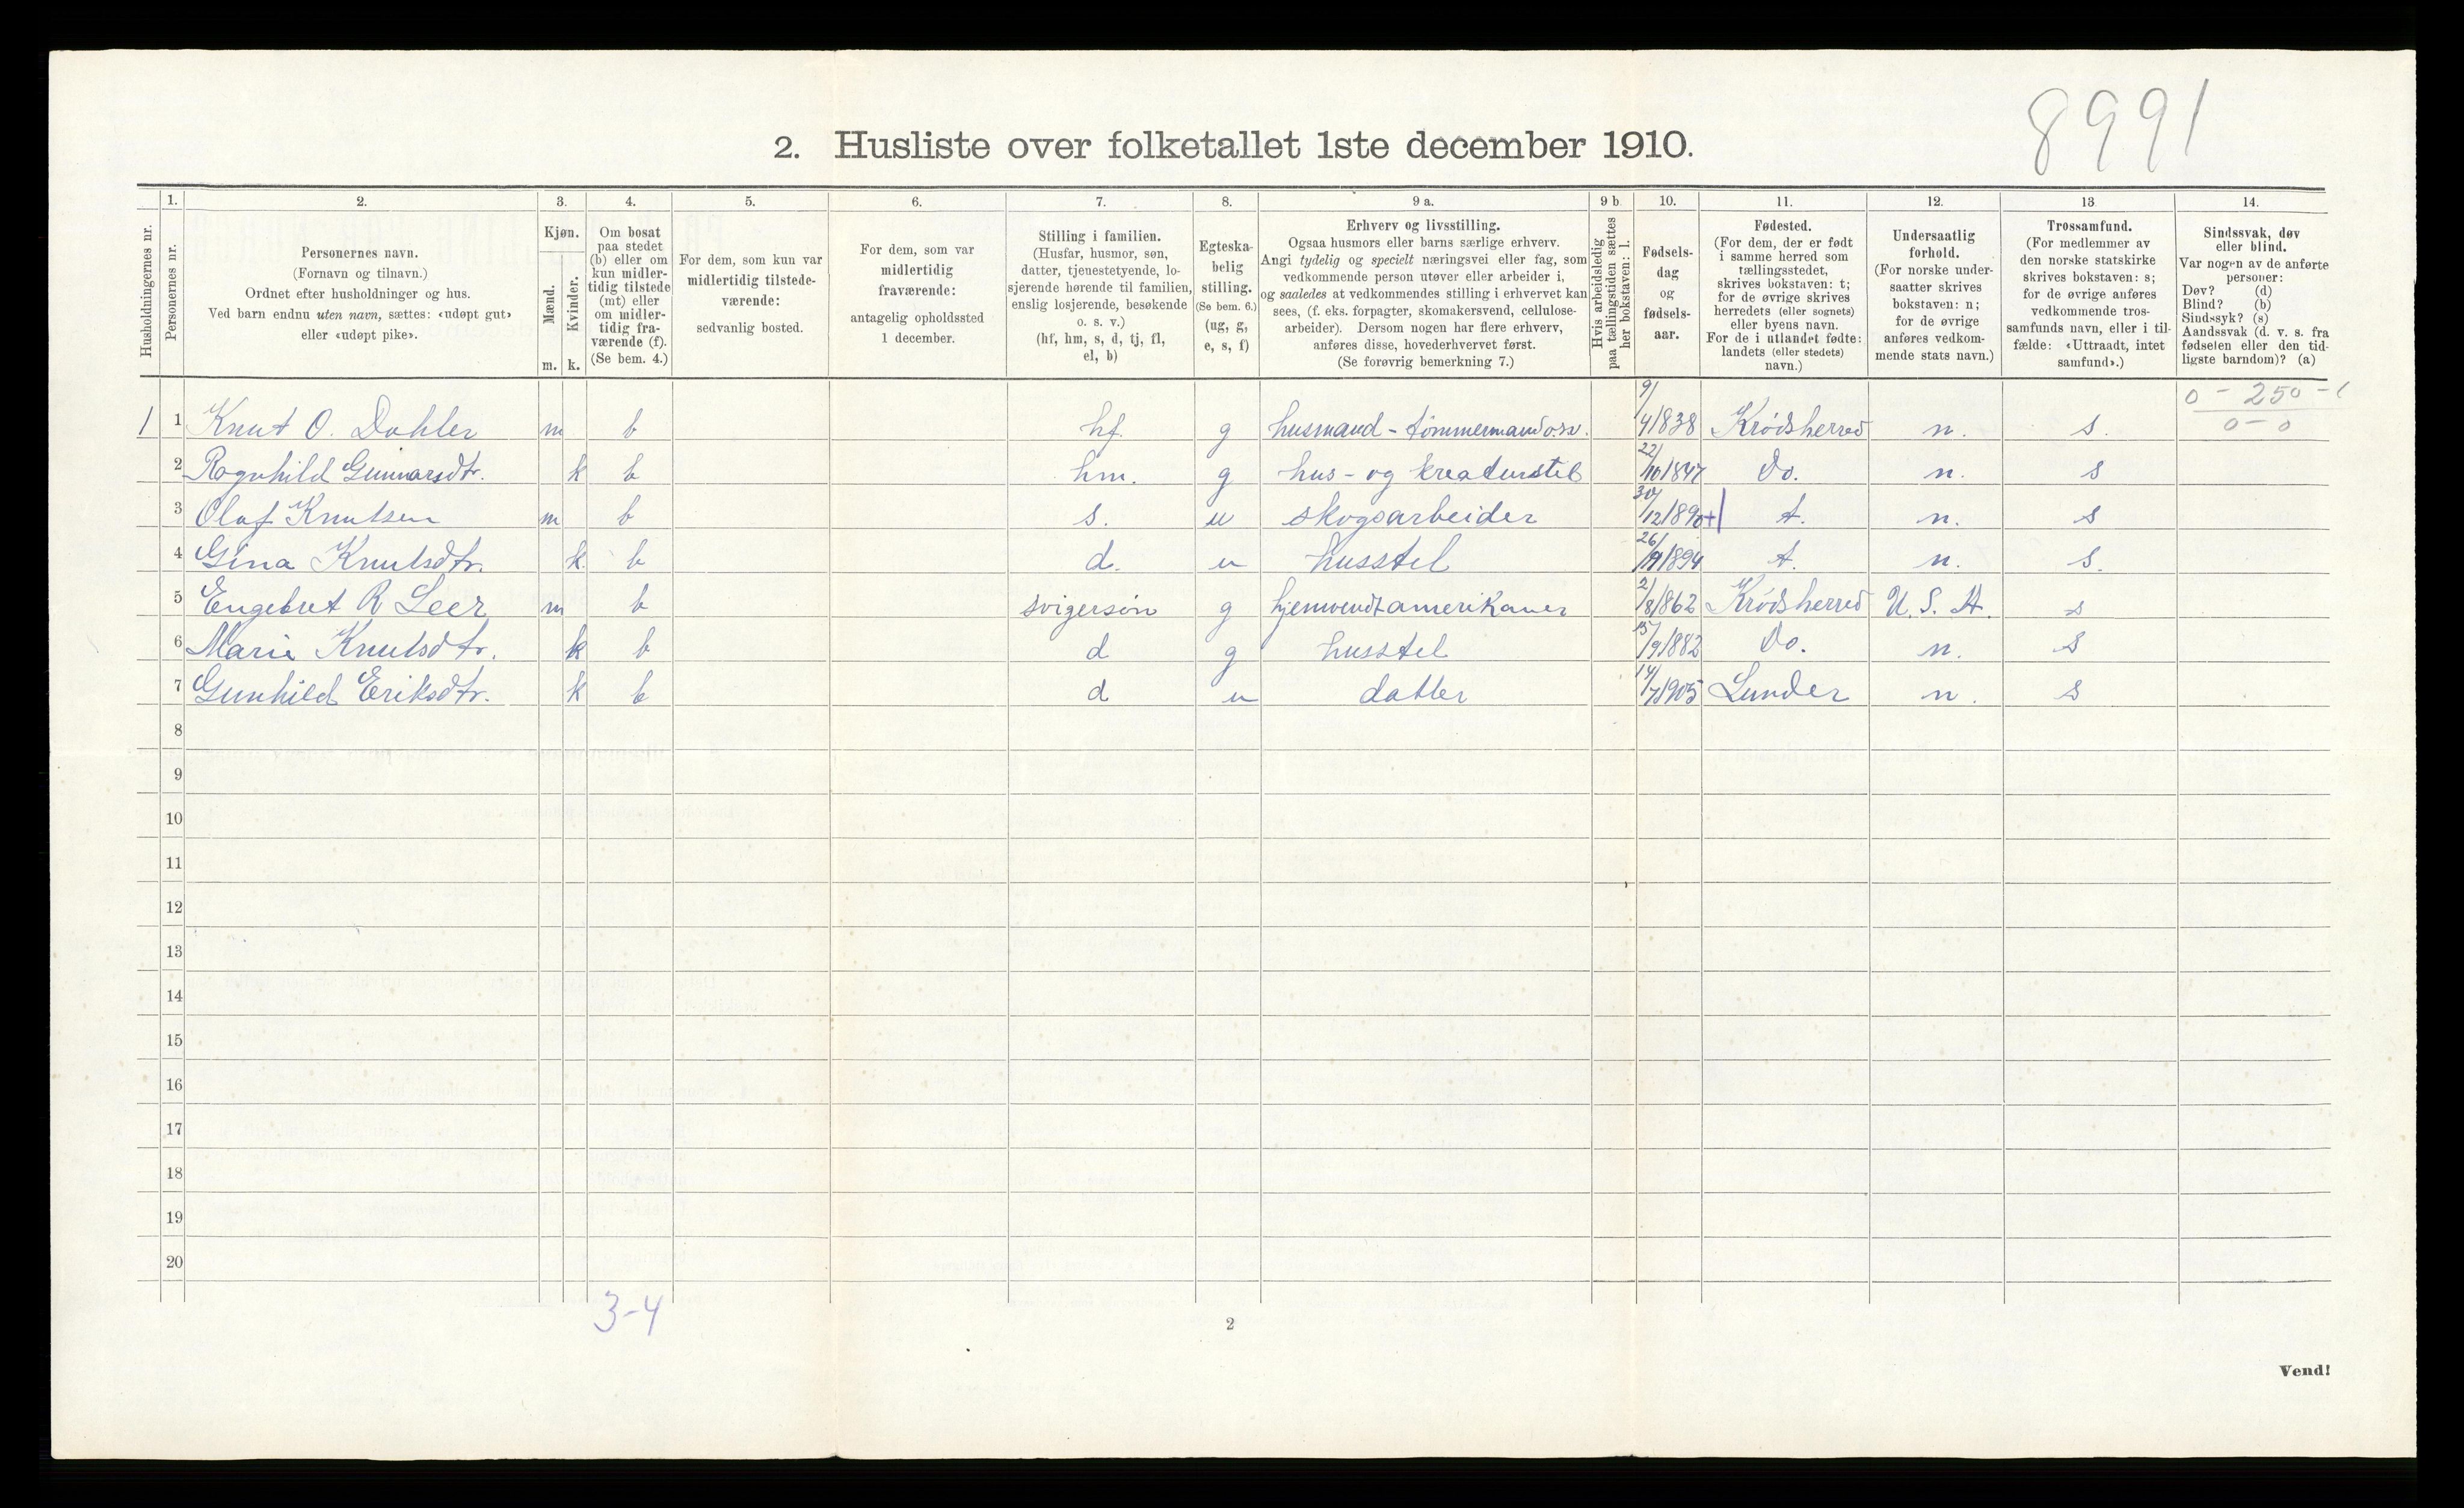 8991
2. Husliste over folketallet 1ste december 1910.
Husholdningernes nr.
1.
Personernes nr.
2.
Personernes navn.
(Fornavn og tilnavn.)
Ordnet efter husholdninger og hus.
Ved barn endnu uten navn, sættes: «udøpt gut»
eller «udøpt pike».
3.
Kjøn.
Mænd.
Kvinder.
m. k.
4.
Om bosat
paa stedet
(b) eller om
kun midler-
tidig tilstede
(mt) eller
om midler-
tidig fra-
værende (f).
(Se bem. 4.)
5.
For dem, som kun var
midlertidig tilstede-
værende:
sedvanlig bosted.
6.
For dem, som var
midlertidig
fraværende:
antagelig opholdssted
1 december.
7.
Stilling i familien.
(Husfar, husmor, søn,
datter, tjenestetyende, lo-
sjerende hørende til familien,
enslig losjerende, besøkende
o. s. v.)
(hf, hm, s, d, tj, fl,
el, b)
8.
Egteska-
belig
stilling.
(Se bem. 6.)
(ug, g,
e, s, f)
9 a.
Erhverv og livsstilling.
Ogsaa husmors eller barns særlige erhverv.
Angi tydelig og specielt næringsvei eller fag, som
vedkommende person utøver eller arbeider i,
og saaledes at vedkommendes stilling i erhvervet kan
sees, (f. eks. forpagter, skomakersvend, cellulose-
arbeider). Dersom nogen har flere erhverv,
anføres disse, hovederhvervet først.
(Se forøvrig bemerkning 7.)
9 b
Hvis arbeidsledig
paa tællingstiden sættes
her bokstaven: l.
10.
Fødsels-
dag
og
fødsels-
aar.
11.
Fødested.
(For dem, der er født
i samme herred som
tællingsstedet,
skrives bokstaven: t;
for de øvrige skrives
herredets (eller sognets)
eller byens navn.
For de i utlandet fødte:
landets (eller stedets)
navn.)
12.
Undersaatlig
forhold.
(For norske under-
saatter skrives
bokstaven: n;
for de øvrige
anføres vedkom-
mende stats navn.)
13
Trossamfund.
(For medlemmer av
den norske statskirke
skrives bokstaven: s;
for de øvrige anføres
vedkommende tros-
samfunds navn, eller i til-
fælde: «Uttraadt, intet
samfund».)
14.
Sindssvak, døv
eller blind.
Var nogen av de anførte
personer:
Døv? (d)
Blind? (b)
Sindssyk? (s)
Aandssvak (d. v. s. fra
fødselen eller den tid-
ligste barndom)? (a)
0 - 250 - 1
0 - 0
1 1 Knut O. Dahler m b hf. g husmand - tømmermand osv. 9/4 1838 Krødsherred n. s.
2 Ragnhild Gunnarsdtr. k b hm. g hus- og kreaturstel 22/10 1847 Do. n. s
3 Olaf Knutsen m b s. u skogsarbeider 30/12 1890 t. n. s
4 Gina Knutsdtr. k b d. u husstel 26/ 1894 t. n. s.
5 Engebret R Leer m b svigersøn g hjemvendt amerikaner 2/8 1862 Krødsherred U. S. A. s
6 Marie Knutsdtr. k b d g husstel 15/9 1882 Do. n. s
7 Gunhild Eriksdtr. k b d u datter 14/7 1905 Lunder n. s
8
9
10
11
12
13
14
15
16
17
18
19
20
3-4
2
Vend!